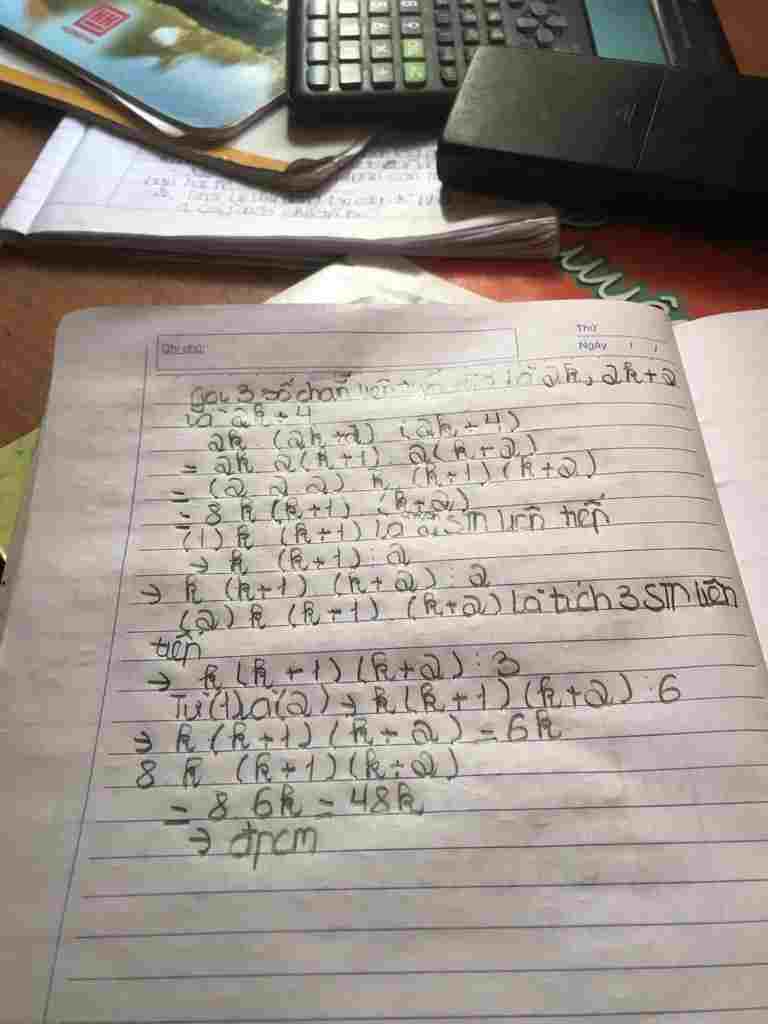 Ghi chú:
Thứ
Ngày / /
Gọi 3 số chẵn liên là 2k, 2k+2
và 2k+4
2k (2k+2) (2k+4)
= 2k 2(k+1) 2(k+2)
= (2 2 2) k (k+1) (k+2)
= 8 k (k+1) (k+2)
(1) k (k+1) là STN liên tiếp
→ k (k+1) : 2
→ k (k+1) (k+2) : 2
(2) k (k+1) (k+2) là tích 3 STN liên
tiếp
→ k (k+1) (k+2) : 3
Từ (1) (2) → k(k+1) (k+2) : 6
→ k (k+1) (k+2) = 6k
8 k (k+1) (k+2)
= 8 6k = 48k
→ đpcm